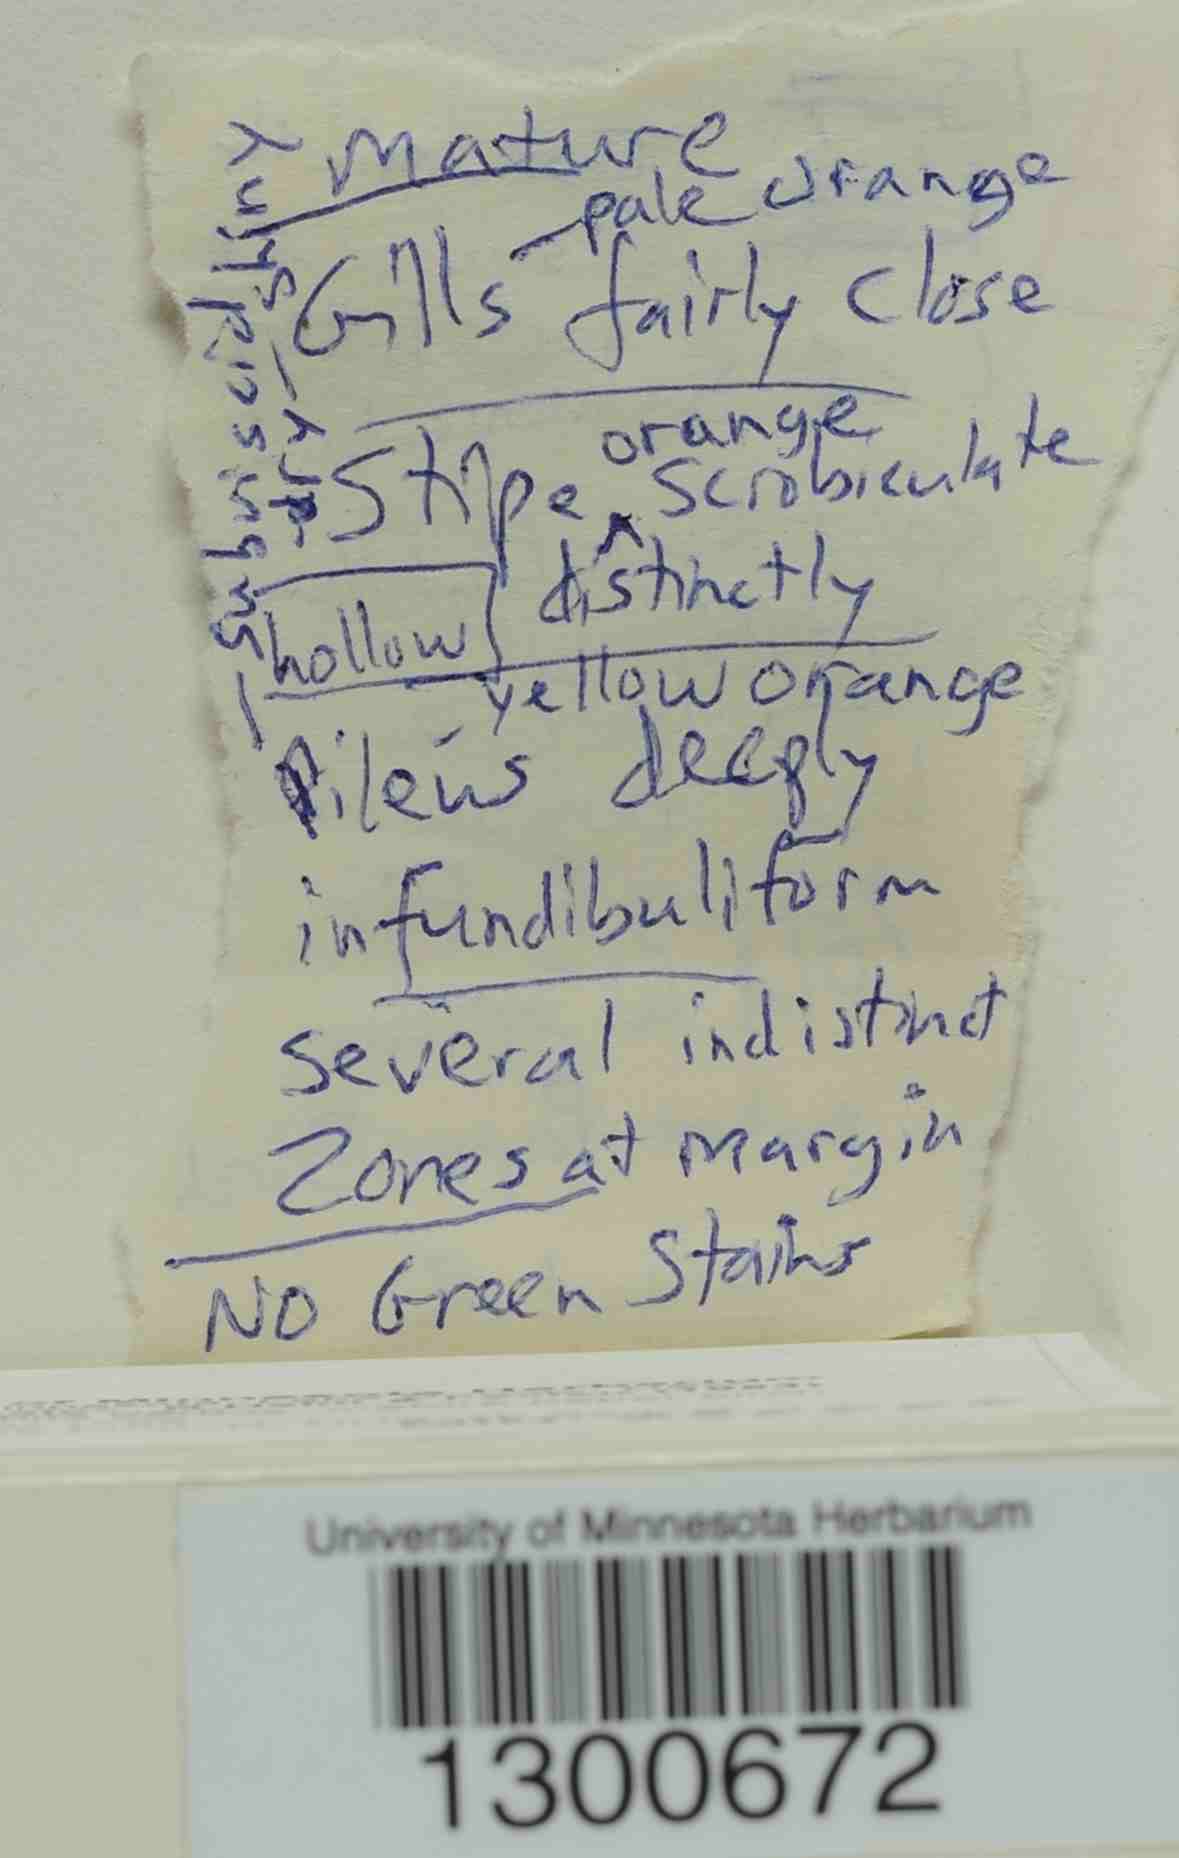 Mature
pale orange
Gills fairly close
orange
Stipe ^ scrobiculate
distinctly
hollow
yellow orange
Pileus deeply
infundibuliform
several indistinct
Zones at margin
No Green Stains
- subviscid shiny
- dry -
University of Minnesota Herbarium
1300672